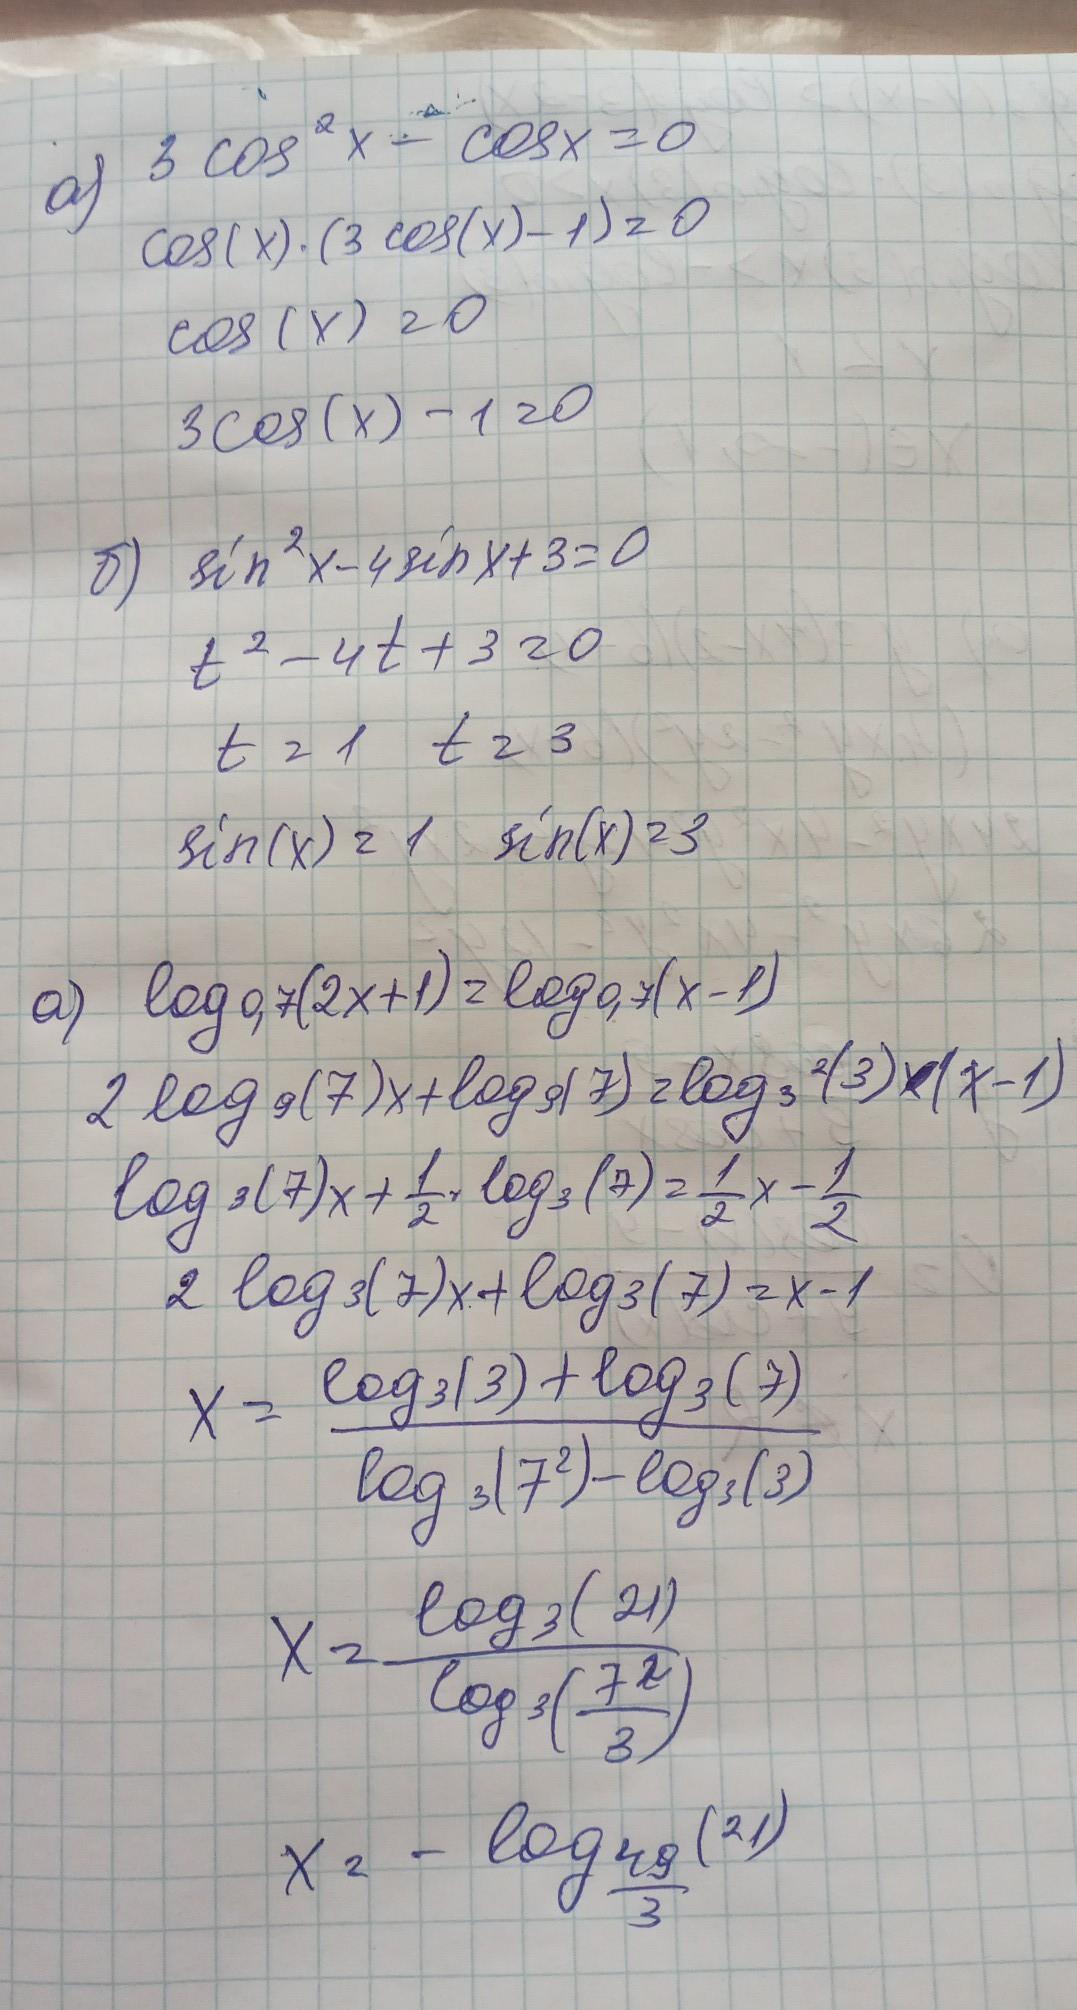 а) 3 cos²x - cosx = 0
cos(x)·(3 cos(x) - 1) = 0
cos(x) = 0
3cos(x) - 1 = 0
б) sin²x - 4sin x + 3 = 0
t² - 4t + 3 = 0
t = 1 t = 3
sin(x) = 1 sin(x) = 3
а) log₀,₇(2x+1) = log₀,₇(x-1)
2 log₉(7)x + log₉(7) = log₃²(3)x(x-1)
log₃(7)x + 1/2 · log₃(7) = 1/2 x - 1/2
2 log₃(7)x + log₃(7) = x - 1
x = (log₃(3) + log₃(7)) / (log₃(7²) - log₃(3))
x = log₃(21) / log₃(7²/3)
x = - log_{49/3}(21)